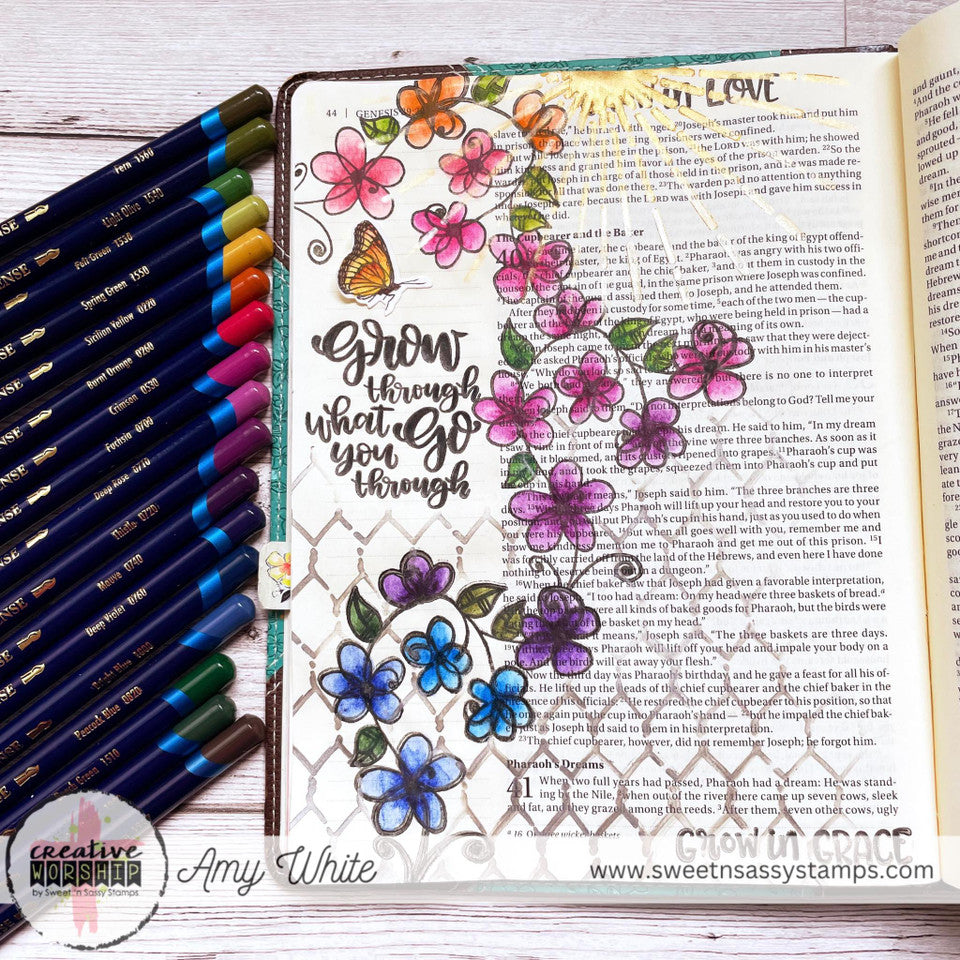 44 | GENESIS
IN LOVE
slave
," he burned with anger. 20Joseph's master took him and put him
in prison, the place where the king's prisoners were confined.
But while Joseph was there in the prison, the LORD was with him; he showed
him kindness and granted him favor in the eyes of the prison warden. 22So the
warden put Joseph in charge of all those held in the prison, and he was made re-
sponsible for all that was done there. 23The warden paid no attention to anything
under Joseph's care, because the LORD was with Joseph and gave him success in
whatever he did.
The Cupbearer and the Baker
40
time later, the cupbearer and the baker of the king of Egypt offend-
their master, the king of Egypt. 2Pharaoh was angry with his two offi-
cials, the chief cupbearer and the chief baker, 3and put them in custody in the
house of the captain of the guard, in the same prison where Joseph was confined.
The captain of the guard assigned them to Joseph, and he attended them.
After they had been in custody for some time, 5each of the two men — the cup-
bearer and the baker of the king of Egypt, who were being held in prison — had a
dream the same night, and each dream had a meaning of its own.
When Joseph came to
saw that they were deject-
he asked Pharaoh's officials who were in custody with him in his master's
"Why do you look so sad
8"We both had dreams," they answered, "but there is no one to interpret
Then Joseph said to them, "Do not interpretations belong to God? Tell me your
the chief cupbearer
his dream. He said to him, "In my dream
I saw a vine in front of me,
the vine were three branches. As soon as it
budded, it blossomed, and its clusters ripened into grapes. 11Pharaoh's cup was
in my hand, and I took the grapes, squeezed them into Pharaoh's cup and put
the cup in his hand."
means," Joseph said to him. "The three branches are three
days. 13Within three days Pharaoh will lift up your head and restore you to your
position, and you will put Pharaoh's cup in his hand, just as you used to do when
you were his cupbearer. 14But when all goes well with you, remember me and
show me kindness; mention me to Pharaoh and get me out of this prison. 15I
was forcibly carried off from the land of the Hebrews, and even here I have done
nothing to deserve being put in a dungeon."
16When the chief baker saw that Joseph had given a favorable interpretation,
he said to Joseph, "I too had a dream: On my head were three baskets of bread.a
were all kinds of baked goods for Pharaoh, but the birds were
eating them out of the basket on my head."
means," Joseph said. "The three baskets are three days.
Within three days Pharaoh will lift off your head and impale your body on a
pole. And the birds will eat away your flesh."
Now the third day was Pharaoh's birthday, and he gave a feast for all his of-
ficials. He lifted up the heads of the chief cupbearer and the chief baker in the
presence of his officials: He restored the chief cupbearer to his position, so that
he once again put the cup into Pharaoh's hand — but he impaled the chief bak-
er, just as Joseph had said to them in his interpretation.
23The chief cupbearer, however, did not remember Joseph; he forgot him.
Pharaoh's Dreams
41
When two full years had passed, Pharaoh had a dream: He was stand-
ing by the Nile, 2when out of the river there came up seven cows, sleek
and fat, and they grazed among the reeds. 3After them, seven other cows, ugly
a 16 Or three wicker baskets
GROW IN GRACE
Grow
through
what Go
you
through
Fern 1560
Light Olive 1540
Felt Green 1530
Spring Green 1550
Sicilian Yellow 0220
Burnt Orange 0260
Crimson 0530
Fuchsia 0700
Deep Rose 0710
Thistle 0720
Mauve 0740
Deep Violet 0760
Bright Blue 1000
Peacock Blue 0820
Green 1510
creative
WORSHIP
by Sweet 'n Sassy Stamps
Amy White
www.sweetnsassystamps.com